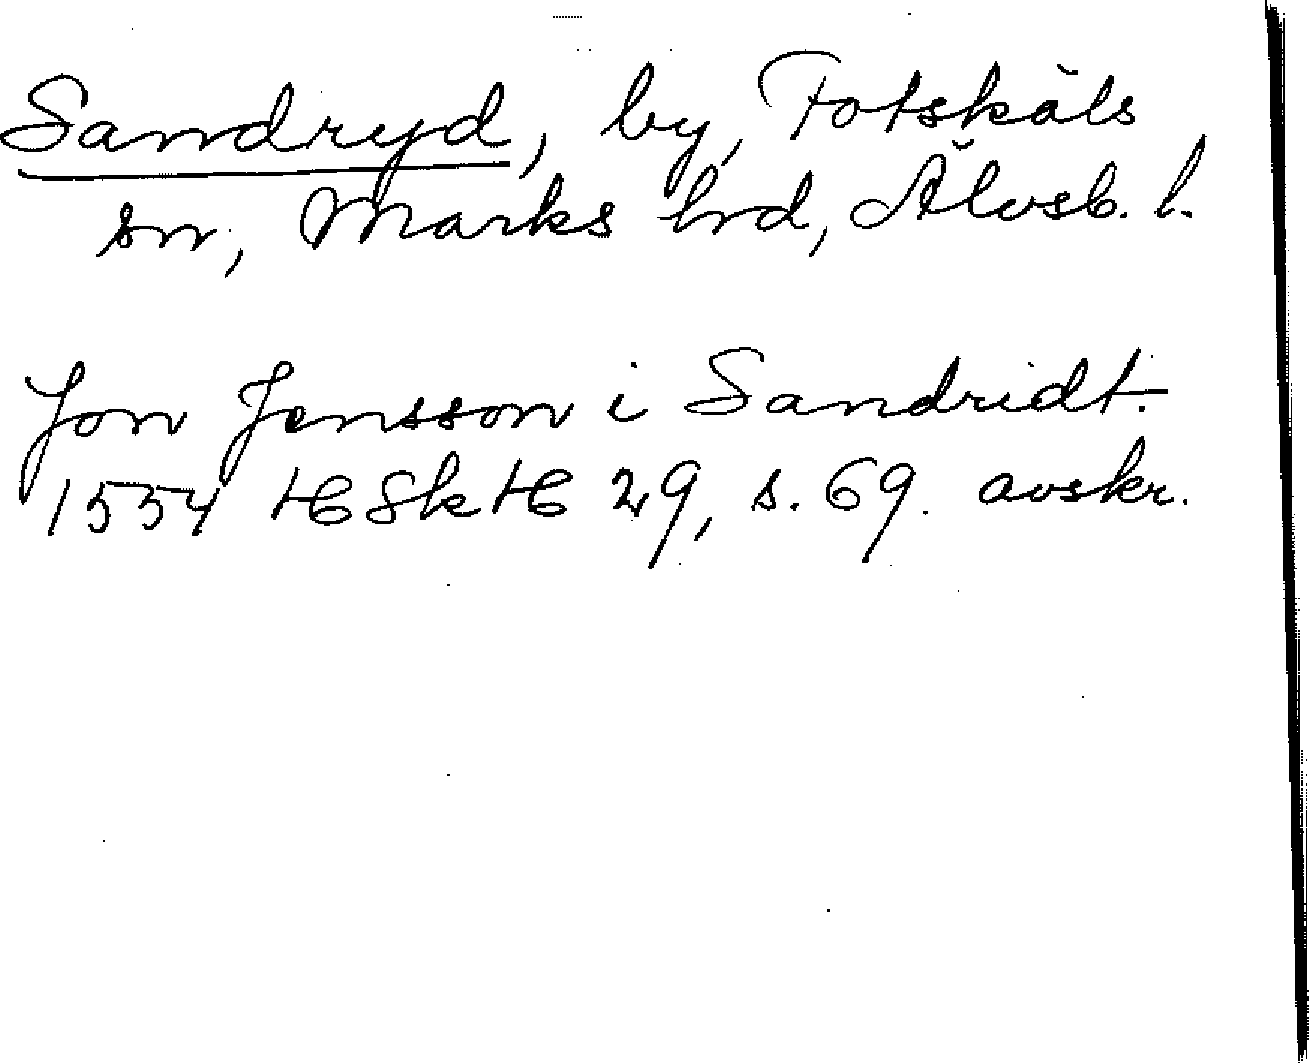 Sandryd, by, Fotskäls
sn, Marks hd, Älvsb. l.
Jon Jensson i Sandridt.
1554 HSkH 29, s. 69. avskr.